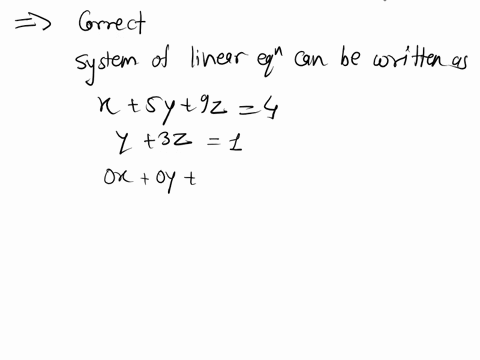 ⇒ Correct
System of linear eqⁿ can be written as
x + 5y + 9z = 4
y + 3z = 1
0x + 0y +